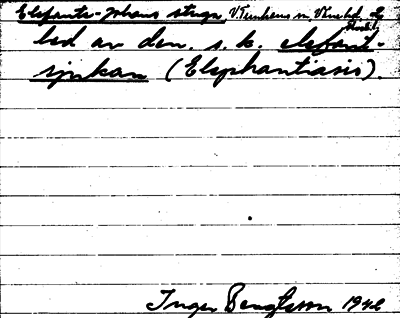 Elefanta-Johans stuga, V. Tunhems sn, V
led av den s. k. elefant-
sjukan (Elephantiasis).
Inger Bengtsson 1942